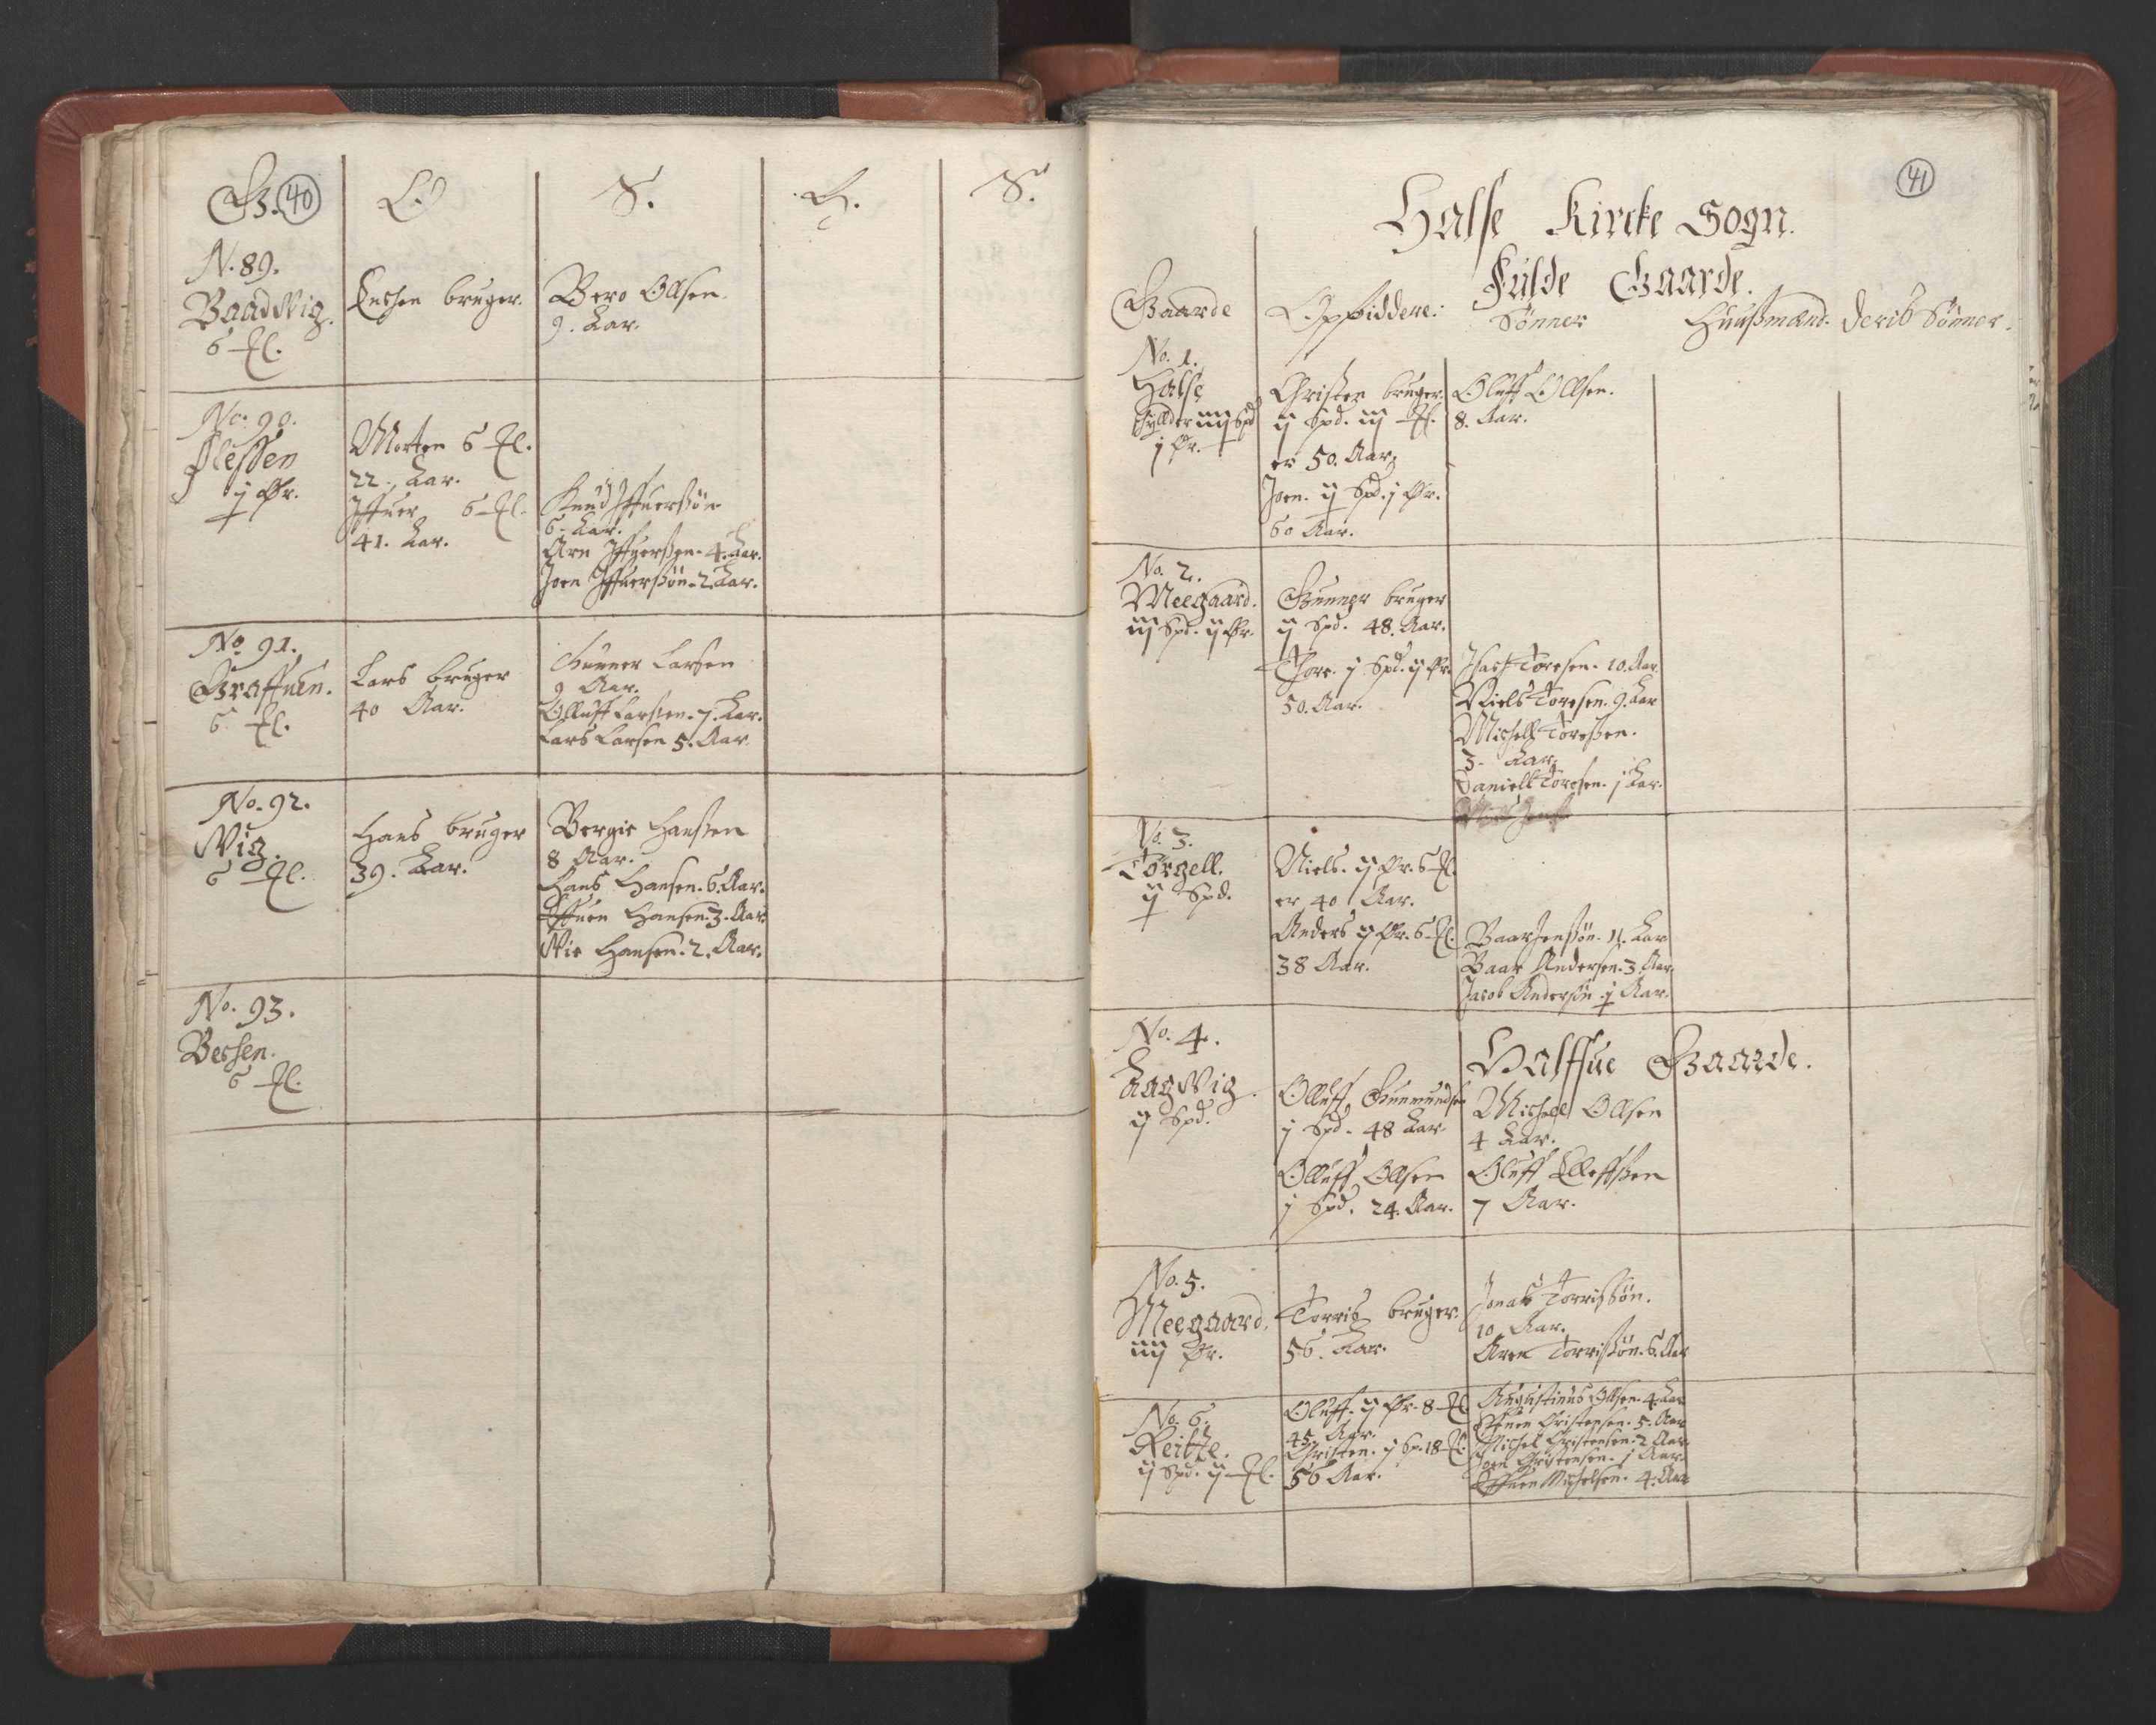 G. 40
O
S.
H.
S.
N. 89.
Baadvig.
6 ℳl.
Enchen bruger.
Bero Olsen.
9. Aar.
No. 90.
Flessen
j Ør.
Morten 6 ℳl.
22. Aar.
Iffuer 6 ℳl.
41. Aar.
Knud Iffuersøn
6. Aar.
Arn Iffuersen. 4. Aar.
Joen Iffuersøn. 2. Aar.
No 91.
Graffuen.
6 ℳl.
Lars bruger
40 Aar.
Gunner Larsen
9 Aar.
Olluff Larsen. 7. Aar.
Lars Larsen 5. Aar
No. 92.
Vig.
6 ℳl.
Hans bruger
39. Aar.
Bergie Hanssen
8 Aar.
Hans Hansen. 6. Aar.
Effuen Hansen. 3. Aar
Hansen. 2. Aar.
No. 93.
Bessen.
6 ℳl.
41
Halse Kircke Sogn.
Fulde Gaarde.
Gaarde
Opsiddere:
Sønner
Huußmænd.
Deris Sønner.
No. 1.
Halse
schylder iiij Spd
j Ør.
Christen bruger
ij Spd. iij ℳl.
er 50. Aar
Joen. ij Spd. j Ør.
60 Aar.
Oluff Ollsen.
8. Aar.
No. 2.
Meegaard.
iij Spd. ij Ør.
Gunner bruger
ij Spd. 48. Aar.
Thore. j Spd. ij Ør.
50. Aar.
Isach Toresen. 10. Aar.
Niels Toresen. 9. Aar
Michell Toressen.
3. Aar.
Daniell Toresen. j Aar.
No. 3.
Torgell.
ij Spd.
Niels. ij Ør. 6 ℳl.
er 40 Aar.
Anders ij Ør. 6 ℳl.
38 Aar.
Baar Jenssøn. 11. Aar
Baar Andersen. 3. Aar.
Jacob Andersøn. j Aar.
Halffue Gaarde.
No. 4.
Aagvig.
ij Spd.
Olluff Gunmundsen
j Spd. 48 Aar.
Olluff Ollsen
j Spd. 24. Aar.
Michell Ollsen
4 Aar.
Oluff Elleffssen
7 Aar.
No. 5.
Meegaard.
iiij Ør.
Torris bruger.
56. Aar.
Jonas Torrissøn.
10 Aar.
Aren Torrissøn. 6. Aar
No. 6.
Reitte.
ij Spd. ij ℳl.
Oluff. ij Ør. 8 ℳl
45. Aar.
Christen. j Sp. 18 ℳl.
56 Aar.
Augustinus Ollsen. 4. Aar
Effuen Christensen. 5. Aar
Michel Christensen. 2 Aar.
Joen Christensen. j Aar.
Effuen Michelsen. 4. Aar